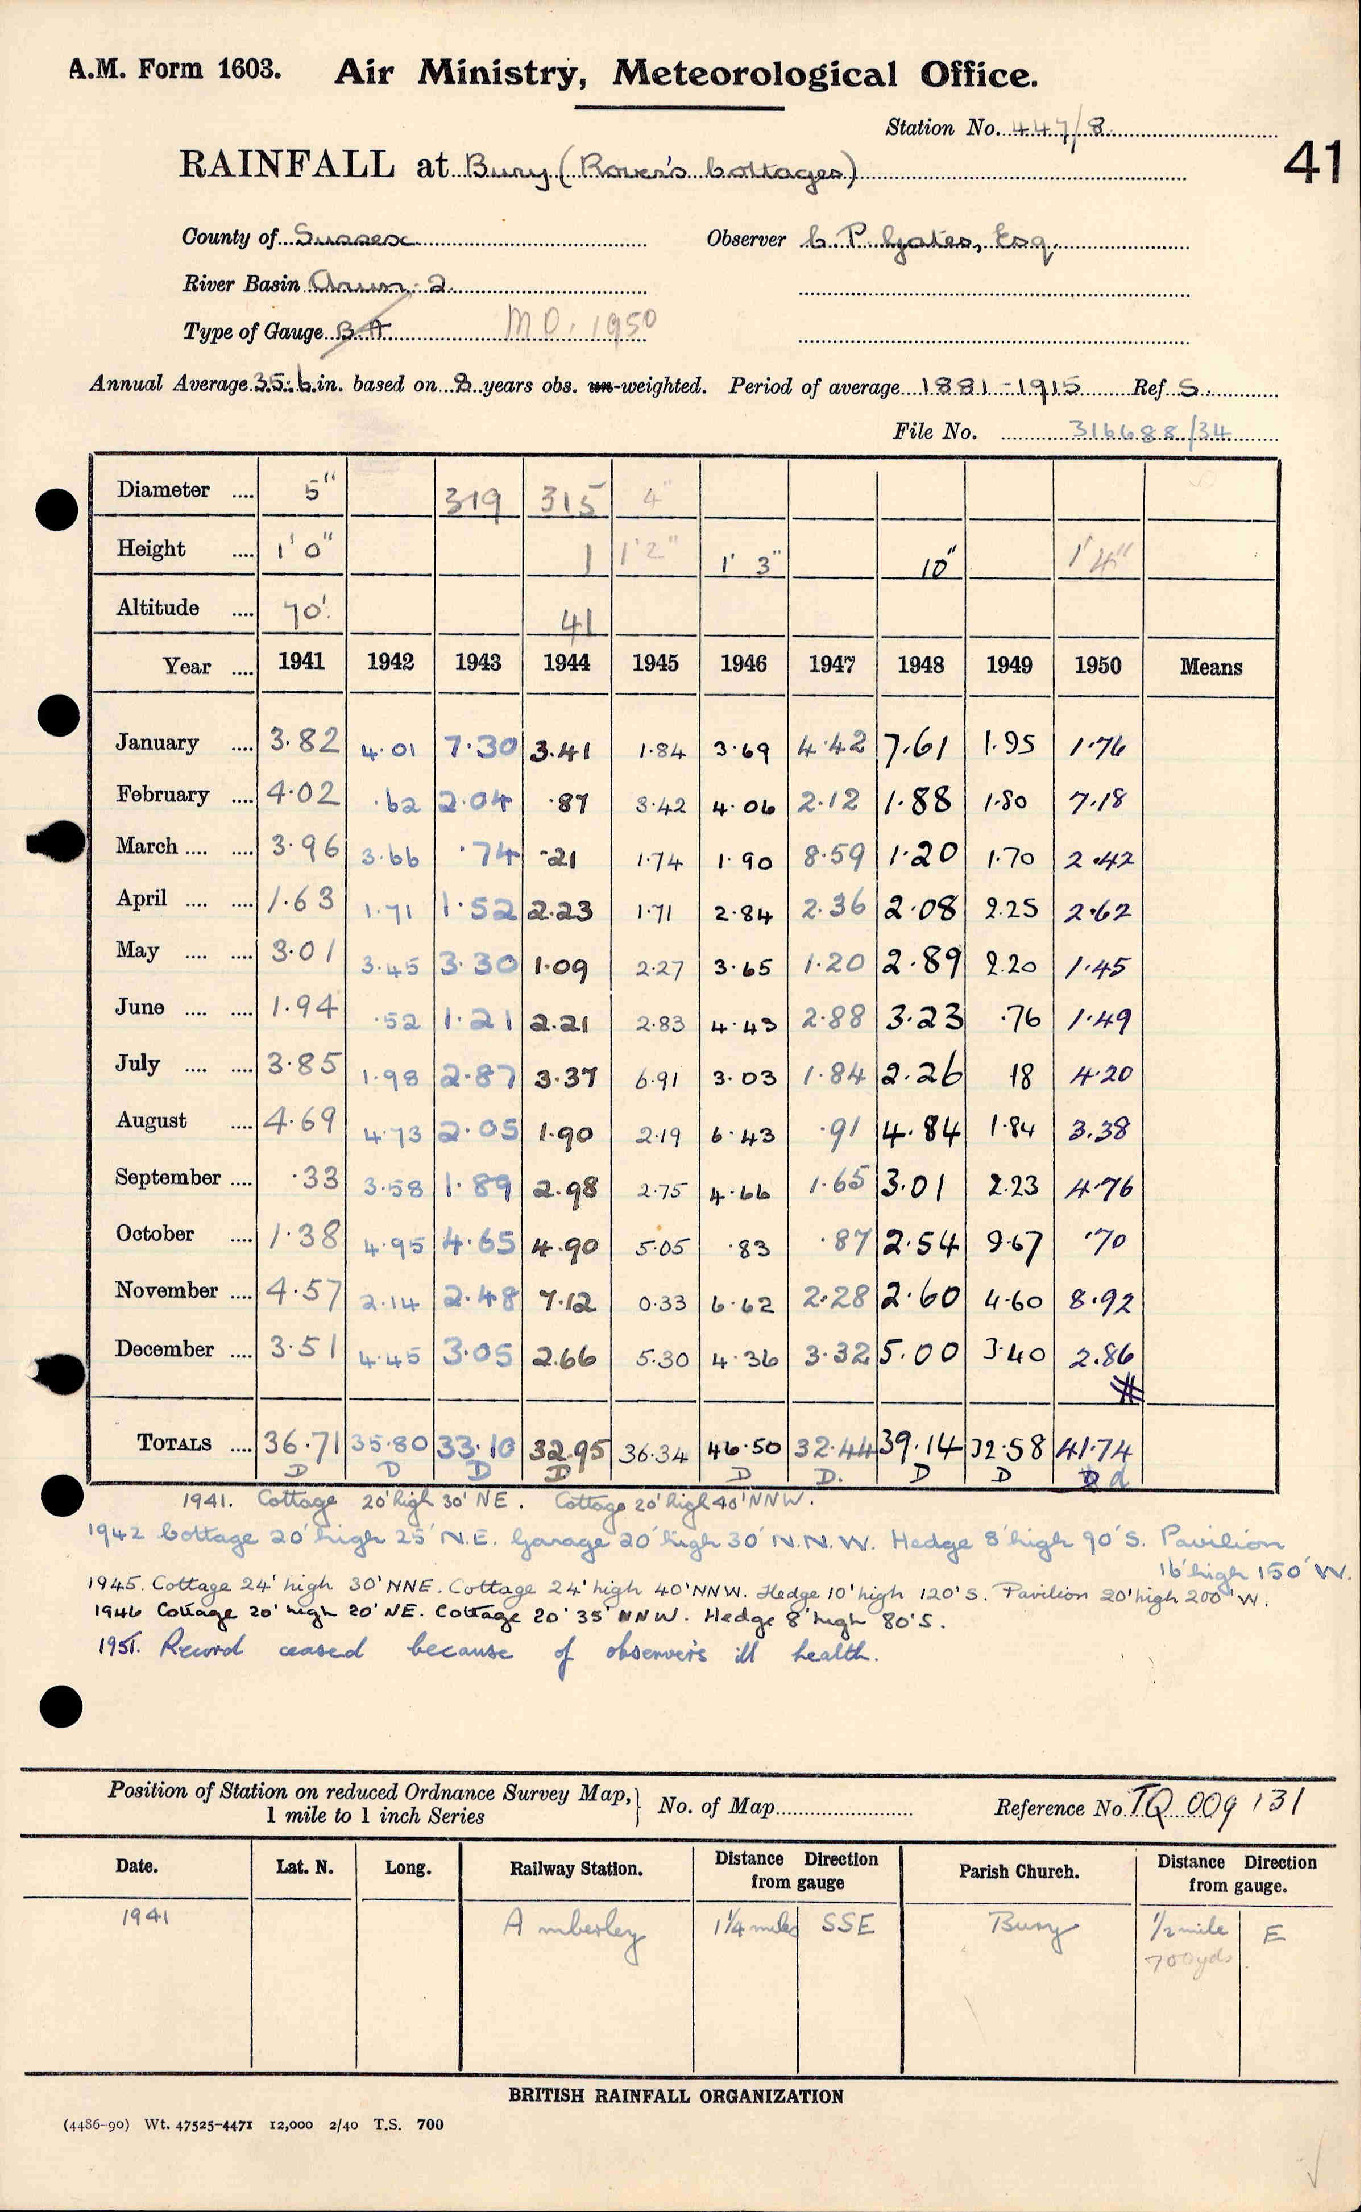 A.M. Form 1603. Air Ministry, Meteorological Office.
Station No. 447/8
41
RAINFALL at Bury (Rover's Cottages)
County of Sussex Observer C P. Gates, Esq.
River Basin Arun. 2.
Type of Gauge B.A. M O. 1950
Annual Average 35.6 in. based on 8 years obs. un-weighted. Period of average 1881-1915 Ref S.
File No. 316688/34
Diameter .... 5" 319 315 4"
Height .... 1' 0" 1 1'2" 1' 3" 10" 1'4"
Altitude .... 70'. 41
Year .... 1941 1942 1943 1944 1945 1946 1947 1948 1949 1950 Means
January .... 3.82 4.01 7.30 3.41 1.84 3.69 4.42 7.61 1.95 1.76
February .... 4.02 .62 2.04 .87 3.42 4.06 2.12 1.88 1.80 7.18
March .... .... 3.96 3.66 .74 .21 1.74 1.90 8.59 1.20 1.70 2.42
April .... .... 1.63 1.71 1.52 2.23 1.71 2.84 2.36 2.08 2.25 2.62
May .... .... 3.01 3.45 3.30 1.09 2.27 3.65 1.20 2.89 2.20 1.45
June .... .... 1.94 .52 1.21 2.21 2.83 4.43 2.88 3.23 .76 1.49
July .... .... 3.85 1.98 2.87 3.37 6.91 3.03 1.84 2.26 .18 4.20
August .... 4.69 4.73 2.05 1.90 2.19 6.43 .91 4.84 1.84 3.38
September .... .33 3.58 1.89 2.98 2.75 4.66 1.65 3.01 2.23 4.76
October .... 1.38 4.95 4.65 4.90 5.05 .83 .87 2.54 9.67 .70
November .... 4.57 2.14 2.48 7.12 0.33 6.62 2.28 2.60 4.60 8.92
December .... 3.51 4.45 3.05 2.66 5.30 4.36 3.32 5.00 3.40 2.86
#
Totals .... 36.71 35.80 33.10 32.95 36.34 46.50 32.44 39.14 32.58 41.74
D D D D D D. D D d
1941. Cottage 20' high 30' NE. Cottage 20' high 40' NNW.
1942 Cottage 20' high 25' N.E. Garage 20' high 30' N.N.W. Hedge 8' high 90' S. Pavilion
16' high 150' W.
1945. Cottage 24' high 30' NNE. Cottage 24' high 40' NNW. Hedge 10' high 120' S. Pavilion 20' high 200' W.
1946 Cottage 20' high 20' NE. Cottage 20' 35' NNW. Hedge 8' high 80' S.
1951. Record ceased because of observer's ill health.
Position of Station on reduced Ordnance Survey Map,
1 mile to 1 inch Series
No. of Map Reference No. TQ 009 131
Date. Lat. N. Long. Railway Station. Distance Direction from gauge Parish Church. Distance Direction from gauge.
1941 Amberley 1¼ miles SSE Bury ½ mile E
700yds.
BRITISH RAINFALL ORGANIZATION
(4486-90) Wt. 47525-4471 12,000 2/40 T.S. 700